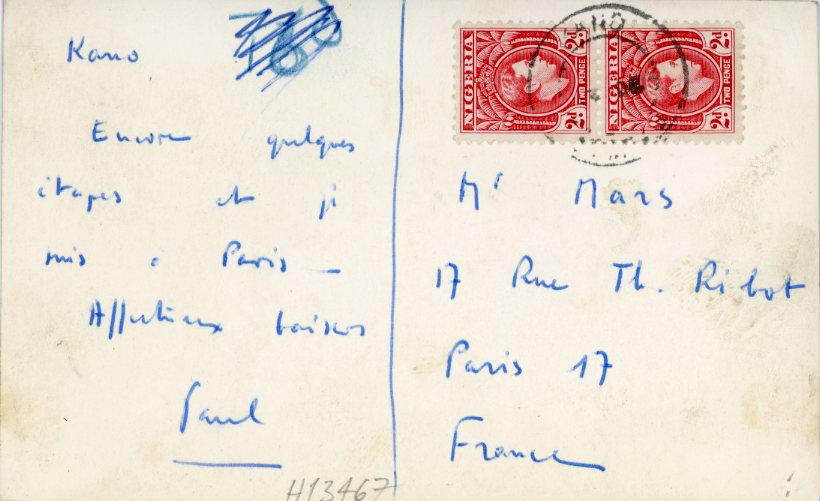 Kano
Encore quelques
étapes et je
suis à Paris —
Affectueux baisers
Paul
H13467
NIGERIA
2d
TWO PENCE
NIGERIA
2d
TWO PENCE
KANO
Mr Mars
17 Rue Th. Ribot
Paris 17
France